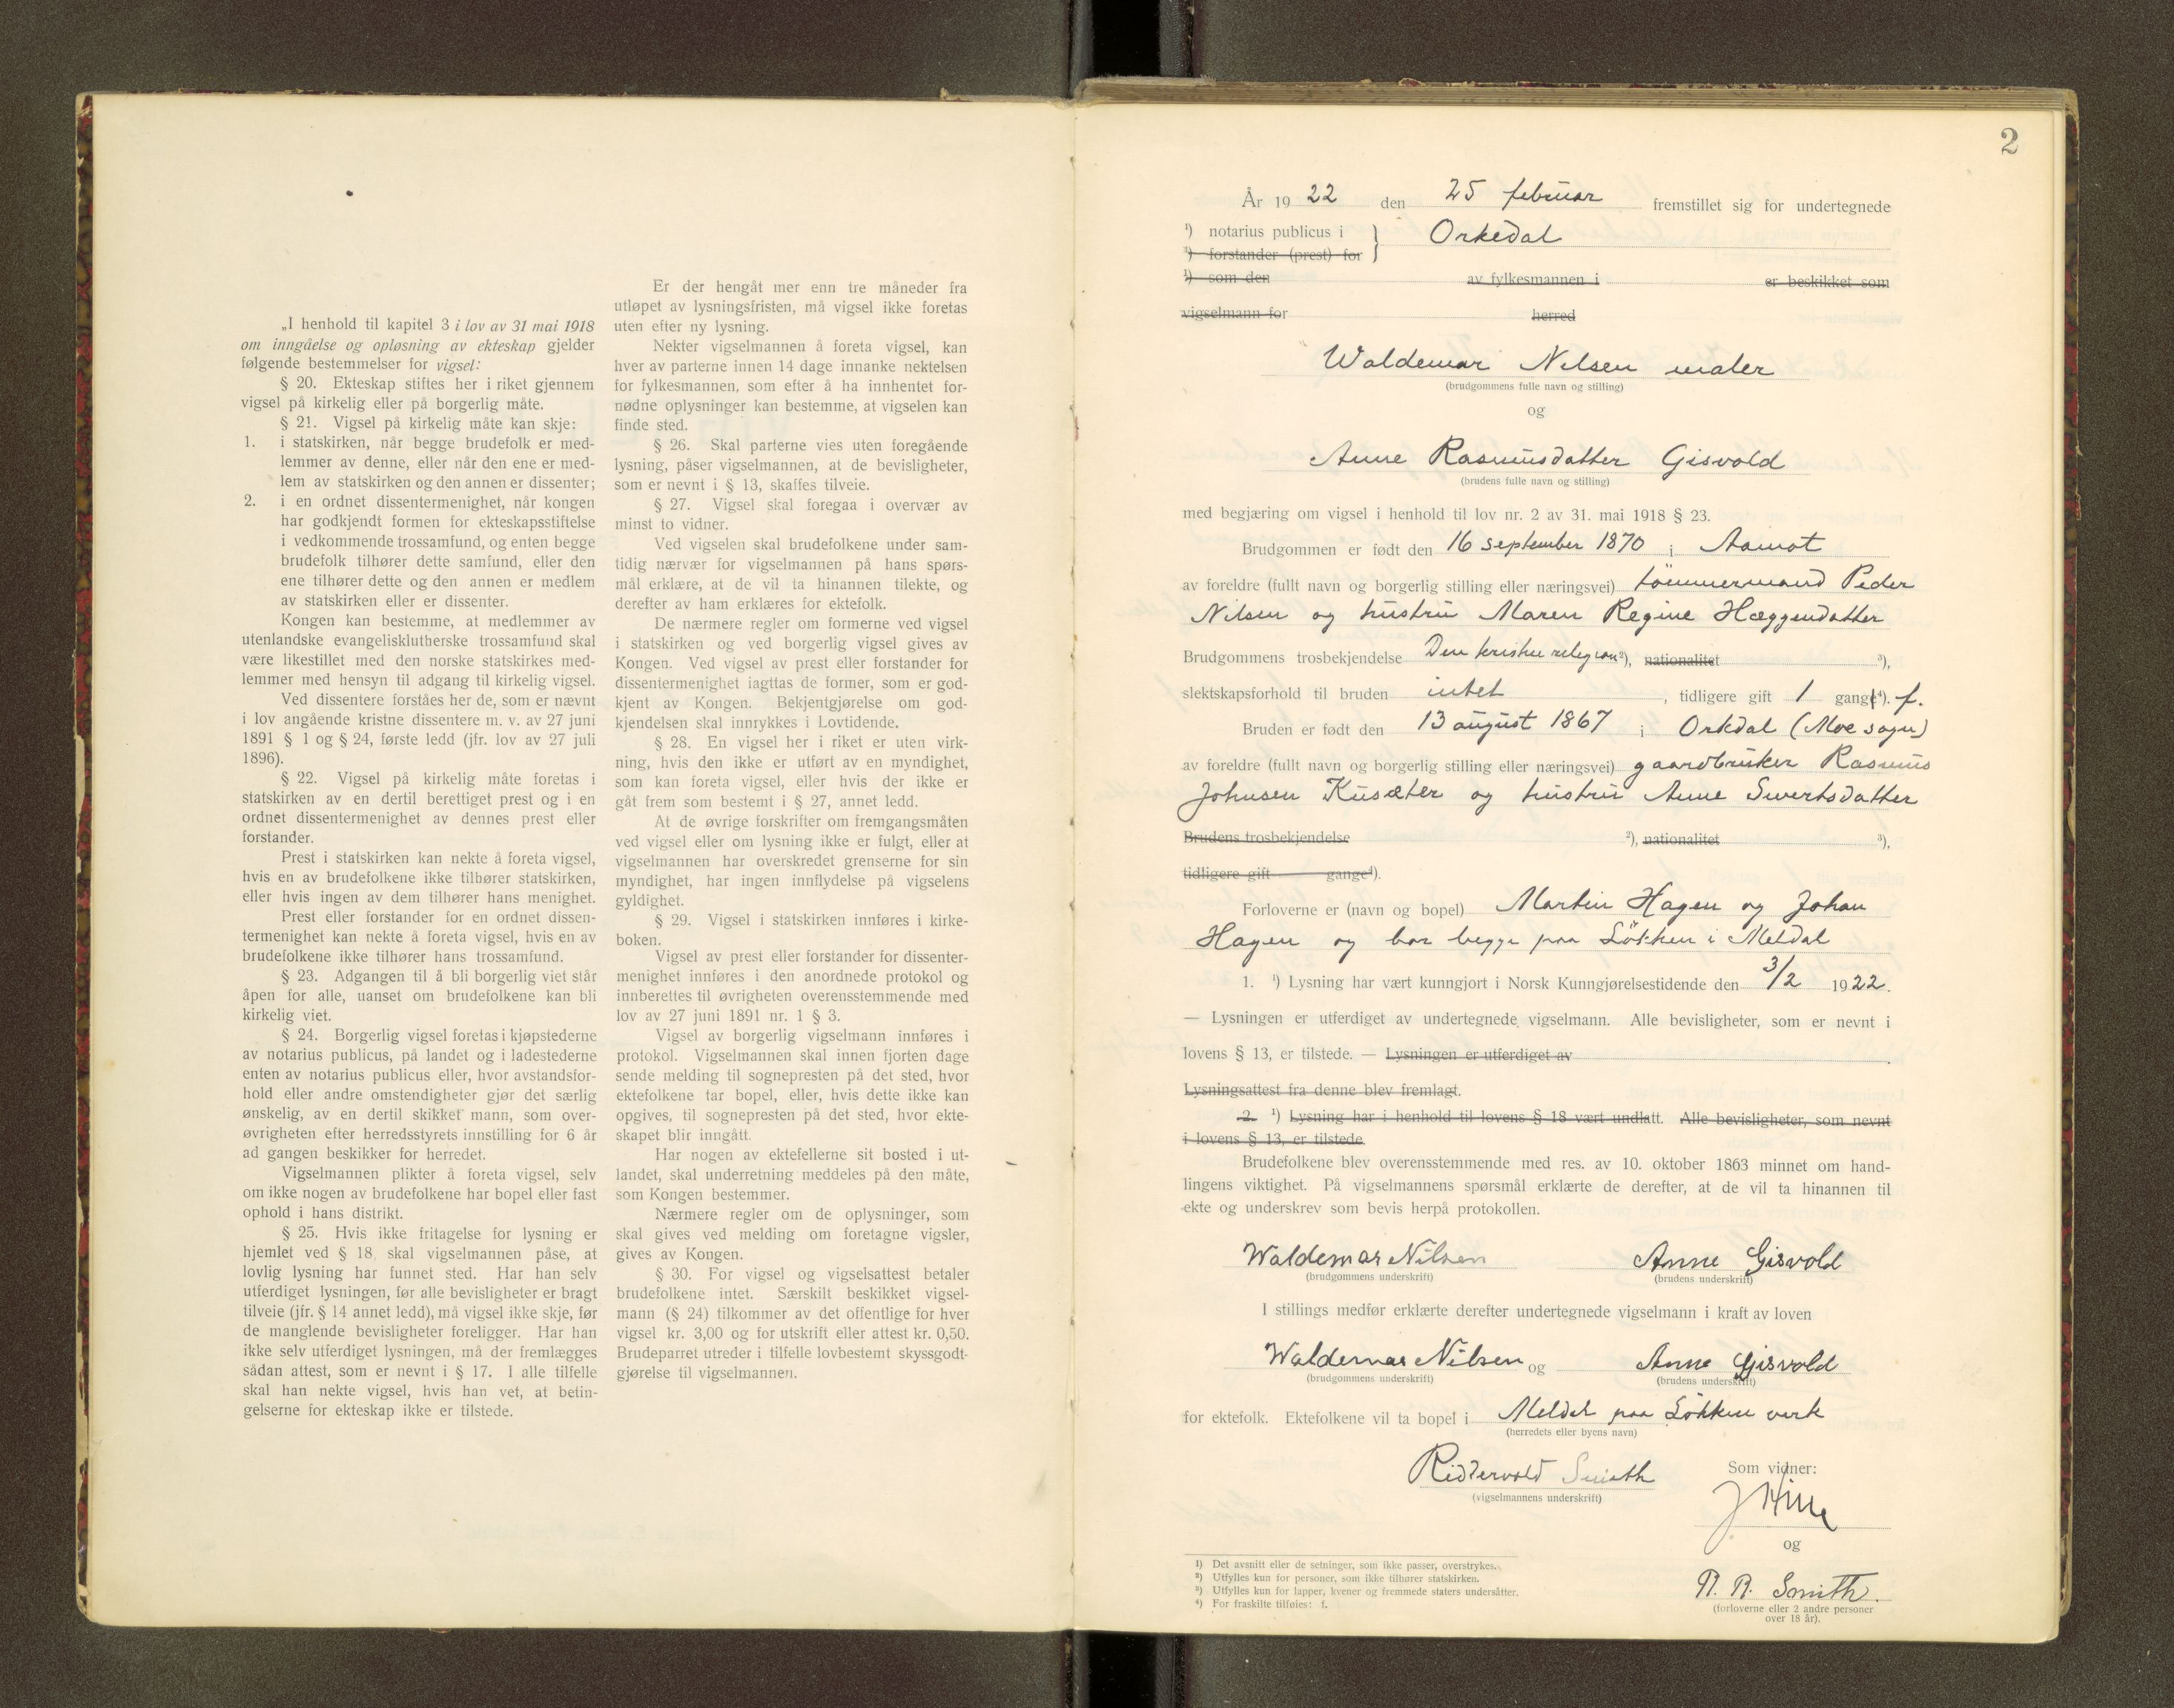 „I henhold til kapitel 3 i lov av 31 mai 1918
om inngåelse og opløsning av ekteskap gjelder
følgende bestemmelser for vigsel:
§ 20. Ekteskap stiftes her i riket gjennem
vigsel på kirkelig eller på borgerlig måte.
§ 21. Vigsel på kirkelig måte kan skje:
1. i statskirken, når begge brudefolk er med-
lemmer av denne, eller når den ene er med-
lem av statskirken og den annen er dissenter;
2. i en ordnet dissentermenighet, når kongen
har godkjendt formen for ekteskapsstiftelse
i vedkommende trossamfund, og enten begge
brudefolk tilhører dette samfund, eller den
ene tilhører dette og den annen er medlem
av statskirken eller er dissenter.
Kongen kan bestemme, at medlemmer av
utenlandske evangelisklutherske trossamfund skal
være likestillet med den norske statskirkes med-
lemmer med hensyn til adgang til kirkelig vigsel.
Ved dissentere forståes her de, som er nævnt
i lov angående kristne dissentere m. v. av 27 juni
1891 § 1 og § 24, første ledd (jfr. lov av 27 juli
1896).
§ 22. Vigsel på kirkelig måte foretas i
statskirken av en dertil berettiget prest og i en
ordnet dissentermenighet av dennes prest eller
forstander.
Prest i statskirken kan nekte å foreta vigsel,
hvis en av brudefolkene ikke tilhører statskirken,
eller hvis ingen av dem tilhører hans menighet.
Prest eller forstander for en ordnet dissen-
termenighet kan nekte å foreta vigsel, hvis en av
brudefolkene ikke tilhører hans trossamfund.
§ 23. Adgangen til å bli borgerlig viet står
åpen for alle, uanset om brudefolkene kan bli
kirkelig viet.
§ 24. Borgerlig vigsel foretas i kjøpstederne
av notarius publicus, på landet og i ladestederne
enten av notarius publicus eller, hvor avstandsfor-
hold eller andre omstendigheter gjør det særlig
ønskelig, av en dertil skikket mann, som over-
øvrigheten efter herredsstyrets innstilling for 6 år
ad gangen beskikker for herredet.
Vigselmannen plikter å foreta vigsel, selv
om ikke nogen av brudefolkene har bopel eller fast
ophold i hans distrikt.
§ 25. Hvis ikke fritagelse for lysning er
hjemlet ved § 18, skal vigselmannen påse, at
lovlig lysning har funnet sted. Har han selv
utferdiget lysningen, før alle bevisligheter er bragt
tilveie (jfr. § 14 annet ledd), må vigsel ikke skje, før
de manglende bevisligheter foreligger. Har han
ikke selv utferdiget lysningen, må der fremlægges
sådan attest, som er nevnt i § 17. I alle tilfelle
skal han nekte vigsel, hvis han vet, at betin-
gelserne for ekteskap ikke er tilstede.
Er der hengåt mer enn tre måneder fra
utløpet av lysningsfristen, må vigsel ikke foretas
uten efter ny lysning.
Nekter vigselmannen å foreta vigsel, kan
hver av parterne innen 14 dage innanke nektelsen
for fylkesmannen, som efter å ha innhentet for-
nødne oplysninger kan bestemme, at vigselen kan
finde sted.
§ 26. Skal parterne vies uten foregående
lysning, påser vigselmannen, at de bevisligheter,
som er nevnt i § 13, skaffes tilveie.
§ 27. Vigsel skal foregaa i overvær av
minst to vidner.
Ved vigselen skal brudefolkene under sam-
tidig nærvær for vigselmannen på hans spørs-
mål erklære, at de vil ta hinannen tilekte, og
derefter av ham erklæres for ektefolk.
De nærmere regler om formerne ved vigsel
i statskirken og ved borgerlig vigsel gives av
Kongen. Ved vigsel av prest eller forstander for
dissentermenighet iagttas de former, som er god-
kjent av Kongen. Bekjentgjørelse om god-
kjendelsen skal innrykkes i Lovtidende.
§ 28. En vigsel her i riket er uten virk-
ning, hvis den ikke er utført av en myndighet,
som kan foreta vigsel, eller hvis der ikke er
gåt frem som bestemt i § 27, annet ledd.
At de øvrige forskrifter om fremgangsmåten
ved vigsel eller om lysning ikke er fulgt, eller at
vigselmannen har overskredet grenserne for sin
myndighet, har ingen innflydelse på vigselens
gyldighet.
§ 29. Vigsel i statskirken innføres i kirke-
boken.
Vigsel av prest eller forstander for dissenter-
menighet innføres i den anordnede protokol og
innberettes til øvrigheten overensstemmende med
lov av 27 juni 1891 nr. 1 § 3.
Vigsel av borgerlig vigselmann innføres i
protokol. Vigselmannen skal innen fjorten dage
sende melding til sognepresten på det sted, hvor
ektefolkene tar bopel, eller, hvis dette ikke kan
opgives, til sognepresten på det sted, hvor ekte-
skapet blir inngått.
Har nogen av ektefellerne sit bosted i ut-
landet, skal underretning meddeles på den måte,
som Kongen bestemmer.
Nærmere regler om de oplysninger, som
skal gives ved melding om foretagne vigsler,
gives av Kongen.
§ 30. For vigsel og vigselsattest betaler
brudefolkene intet. Særskilt beskikket vigsel-
mann (§ 24) tilkommer av det offentlige for hver
vigsel kr. 3,00 og for utskrift eller attest kr. 0,50.
Brudeparret utreder i tilfelle lovbestemt skyssgodt-
gjørelse til vigselmannen.
2
År 1922 den 25 februar fremstillet sig for undertegnede
¹) notarius publicus i } Orkedal
¹) forstander (prest) for
¹) som den av fylkesmannen i er beskikket som
vigselmann for herred
Waldemar Nilsen maler
(brudgommens fulle navn og stilling)
og
Anne Rasmusdatter Gisvold
(brudens fulle navn og stilling)
med begjæring om vigsel i henhold til lov nr. 2 av 31. mai 1918 § 23.
Brudgommen er født den 16 september 1870 i Aamot
av foreldre (fullt navn og borgerlig stilling eller næringsvei) tømmermand Peder
Nilsen og hustru Maren Regine Hæggendatter
Brudgommens trosbekjendelse Den kristne religion ²), nationalitet ³),
slektskapsforhold til bruden intet, tidligere gift 1 gang⁴). f.
Bruden er født den 13 august 1867 i Orkdal (Moe sogn)
av foreldre (fullt navn og borgerlig stilling eller næringsvei) gaardbruker Rasmus
Johnsen Kusæter og hustru Anne Sivertsdatter
Brudens trosbekjendelse ²), nationalitet ³),
tidligere gift gange⁴).
Forloverne er (navn og bopel) Martin Hagen og Johan
Hagen og bor begge paa Løkken i Meldal
1. ¹) Lysning har vært kunngjort i Norsk Kunngjørelsestidende den 3/2 1922.
— Lysningen er utferdiget av undertegnede vigselmann. Alle bevisligheter, som er nevnt i
lovens § 13, er tilstede. — Lysningen er utferdiget av
Lysningsattest fra denne blev fremlagt.
2. ¹) Lysning har i henhold til lovens § 18 vært undlatt. Alle bevisligheter, som nevnt
i lovens § 13, er tilstede.
Brudefolkene blev overensstemmende med res. av 10. oktober 1863 minnet om hand-
lingens viktighet. På vigselmannens spørsmål erklærte de derefter, at de vil ta hinannen til
ekte og underskrev som bevis herpå protokollen.
Waldemar Nilsen Anne Gisvold
(brudgommens underskrift) (brudens underskrift)
I stillings medfør erklærte derefter undertegnede vigselmann i kraft av loven
Waldemar Nilsen og Anne Gisvold
(brudgommens underskrift) (brudens underskrift)
for ektefolk. Ektefolkene vil ta bopel i Meldal paa Løkken verk
(herredets eller byens navn)
Ridderwold Smith Som vidner:
(vigselmannens underskrift)
og
R. R. Smith.
(forloverne eller 2 andre personer
over 18 år).
¹) Det avsnitt eller de setninger, som ikke passer, overstrykes.
²) Utfylles kun for personer, som ikke tilhører statskirken.
³) Utfylles kun for lapper, kvener og fremmede staters undersåtter.
⁴) For fraskilte tilføies: f.